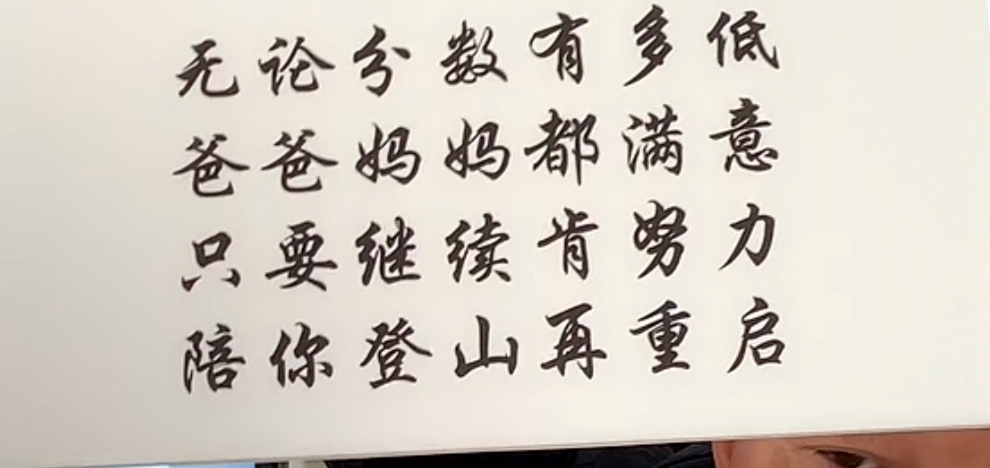 无论分数有多低
爸爸妈妈都满意
只要继续肯努力
陪你登山再重启